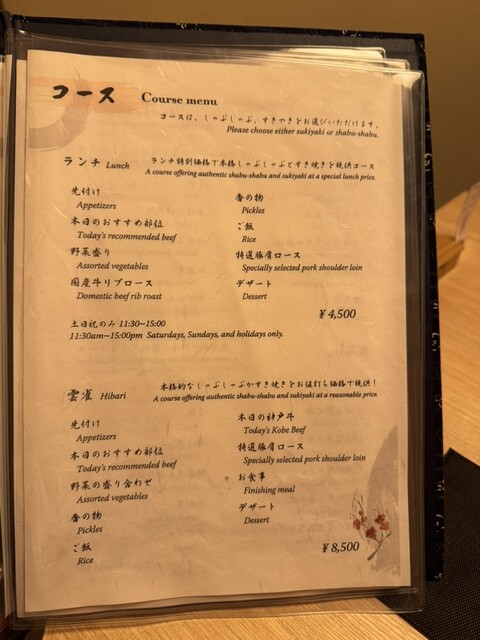 コース Course menu
コースは、しゃぶしゃぶ、すきやきをお選びいただけます。
Please choose either sukiyaki or shabu-shabu.
ランチ Lunch
ランチ特別価格で本格しゃぶしゃぶとすき焼きを提供コース
A course offering authentic shabu-shabu and sukiyaki at a special lunch price.
先付け
Appetizers
本日のおすすめ部位
Today's recommended beef
野菜盛り
Assorted vegetables
国産牛リブロース
Domestic beef rib roast
香の物
Pickles
ご飯
Rice
特選豚肩ロース
Specially selected pork shoulder loin
デザート
Dessert
¥4,500
土日祝のみ 11:30~15:00
11:30am~15:00pm Saturdays, Sundays, and holidays only.
雲雀 Hibari
本格的なしゃぶしゃぶかすき焼きをお値打ち価格で提供!
A course offering authentic shabu-shabu and sukiyaki at a reasonable price.
先付け
Appetizers
本日のおすすめ部位
Today's recommended beef
野菜の盛り合わせ
Assorted vegetables
香の物
Pickles
ご飯
Rice
本日の神戸牛
Today's Kobe Beef
特選豚肩ロース
Specially selected pork shoulder loin
お食事
Finishing meal
デザート
Dessert
¥8,500